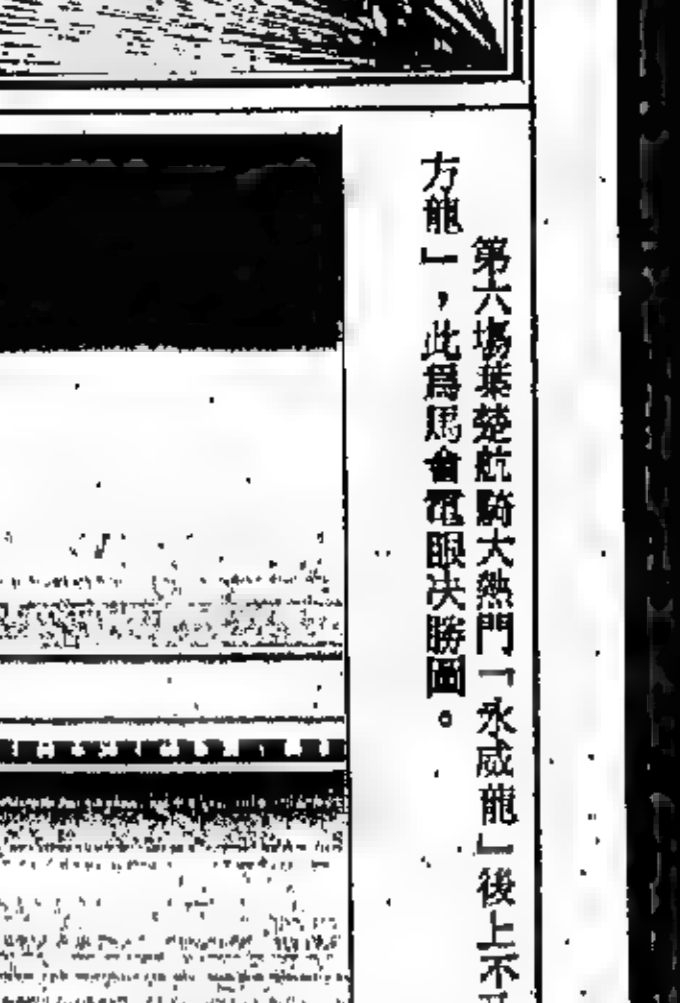 第六塲葉楚航騎大熱門「永威龍」後上不
方龍」，此爲馬會電眼决勝圖。